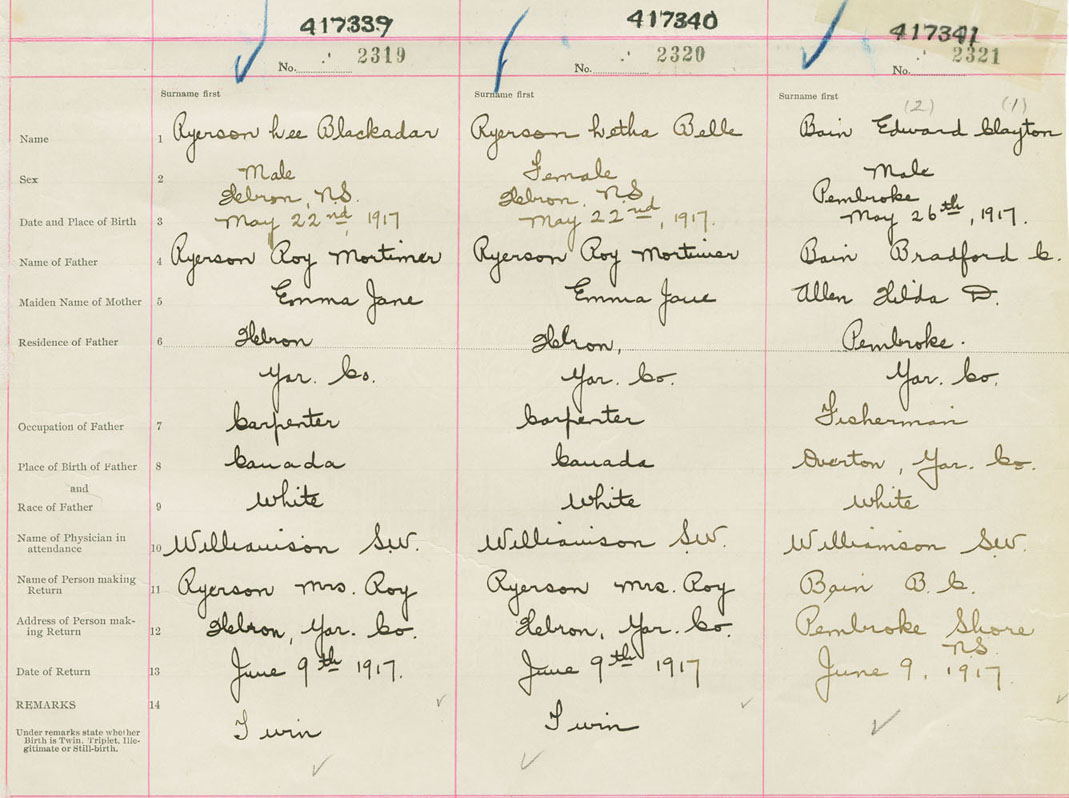 417339 417340 417341
No. 2319 No. 2320 No. 2321
Surname first Surname first Surname first
(2) (1)
Name 1 Ryerson Lee Blackadar Ryerson Letha Belle Bain Edward Clayton
Sex 2 Male Female Male
Hebron, N.S. Hebron, N.S. Pembroke
Date and Place of Birth 3 May 22nd, 1917 May 22nd, 1917. May 26th, 1917.
Name of Father 4 Ryerson Roy Mortimer Ryerson Roy Mortimer Bain Bradford C.
Maiden Name of Mother 5 Emma Jane Emma Jane Allen Hilda D.
Residence of Father 6 Hebron Hebron, Pembroke.
Yar. Co. Yar. Co. Yar. Co.
Occupation of Father 7 Carpenter Carpenter Fisherman
Place of Birth of Father 8 Canada Canada Overton, Yar. Co.
and
Race of Father 9 White White White
Name of Physician in
attendance 10 Williamson S.W. Williamson S.W. Williamson S.W.
Name of Person making
Return 11 Ryerson Mrs. Roy Ryerson Mrs. Roy Bain B. C.
Address of Person mak-
ing Return 12 Hebron, Yar. Co. Hebron, Yar. Co. Pembroke Shore
N.S.
Date of Return 13 June 9th 1917. June 9th 1917 June 9, 1917.
REMARKS 14
Under remarks state whether
Birth is Twin, Triplet, Ille-
gitimate or Still-birth.
Twin Twin